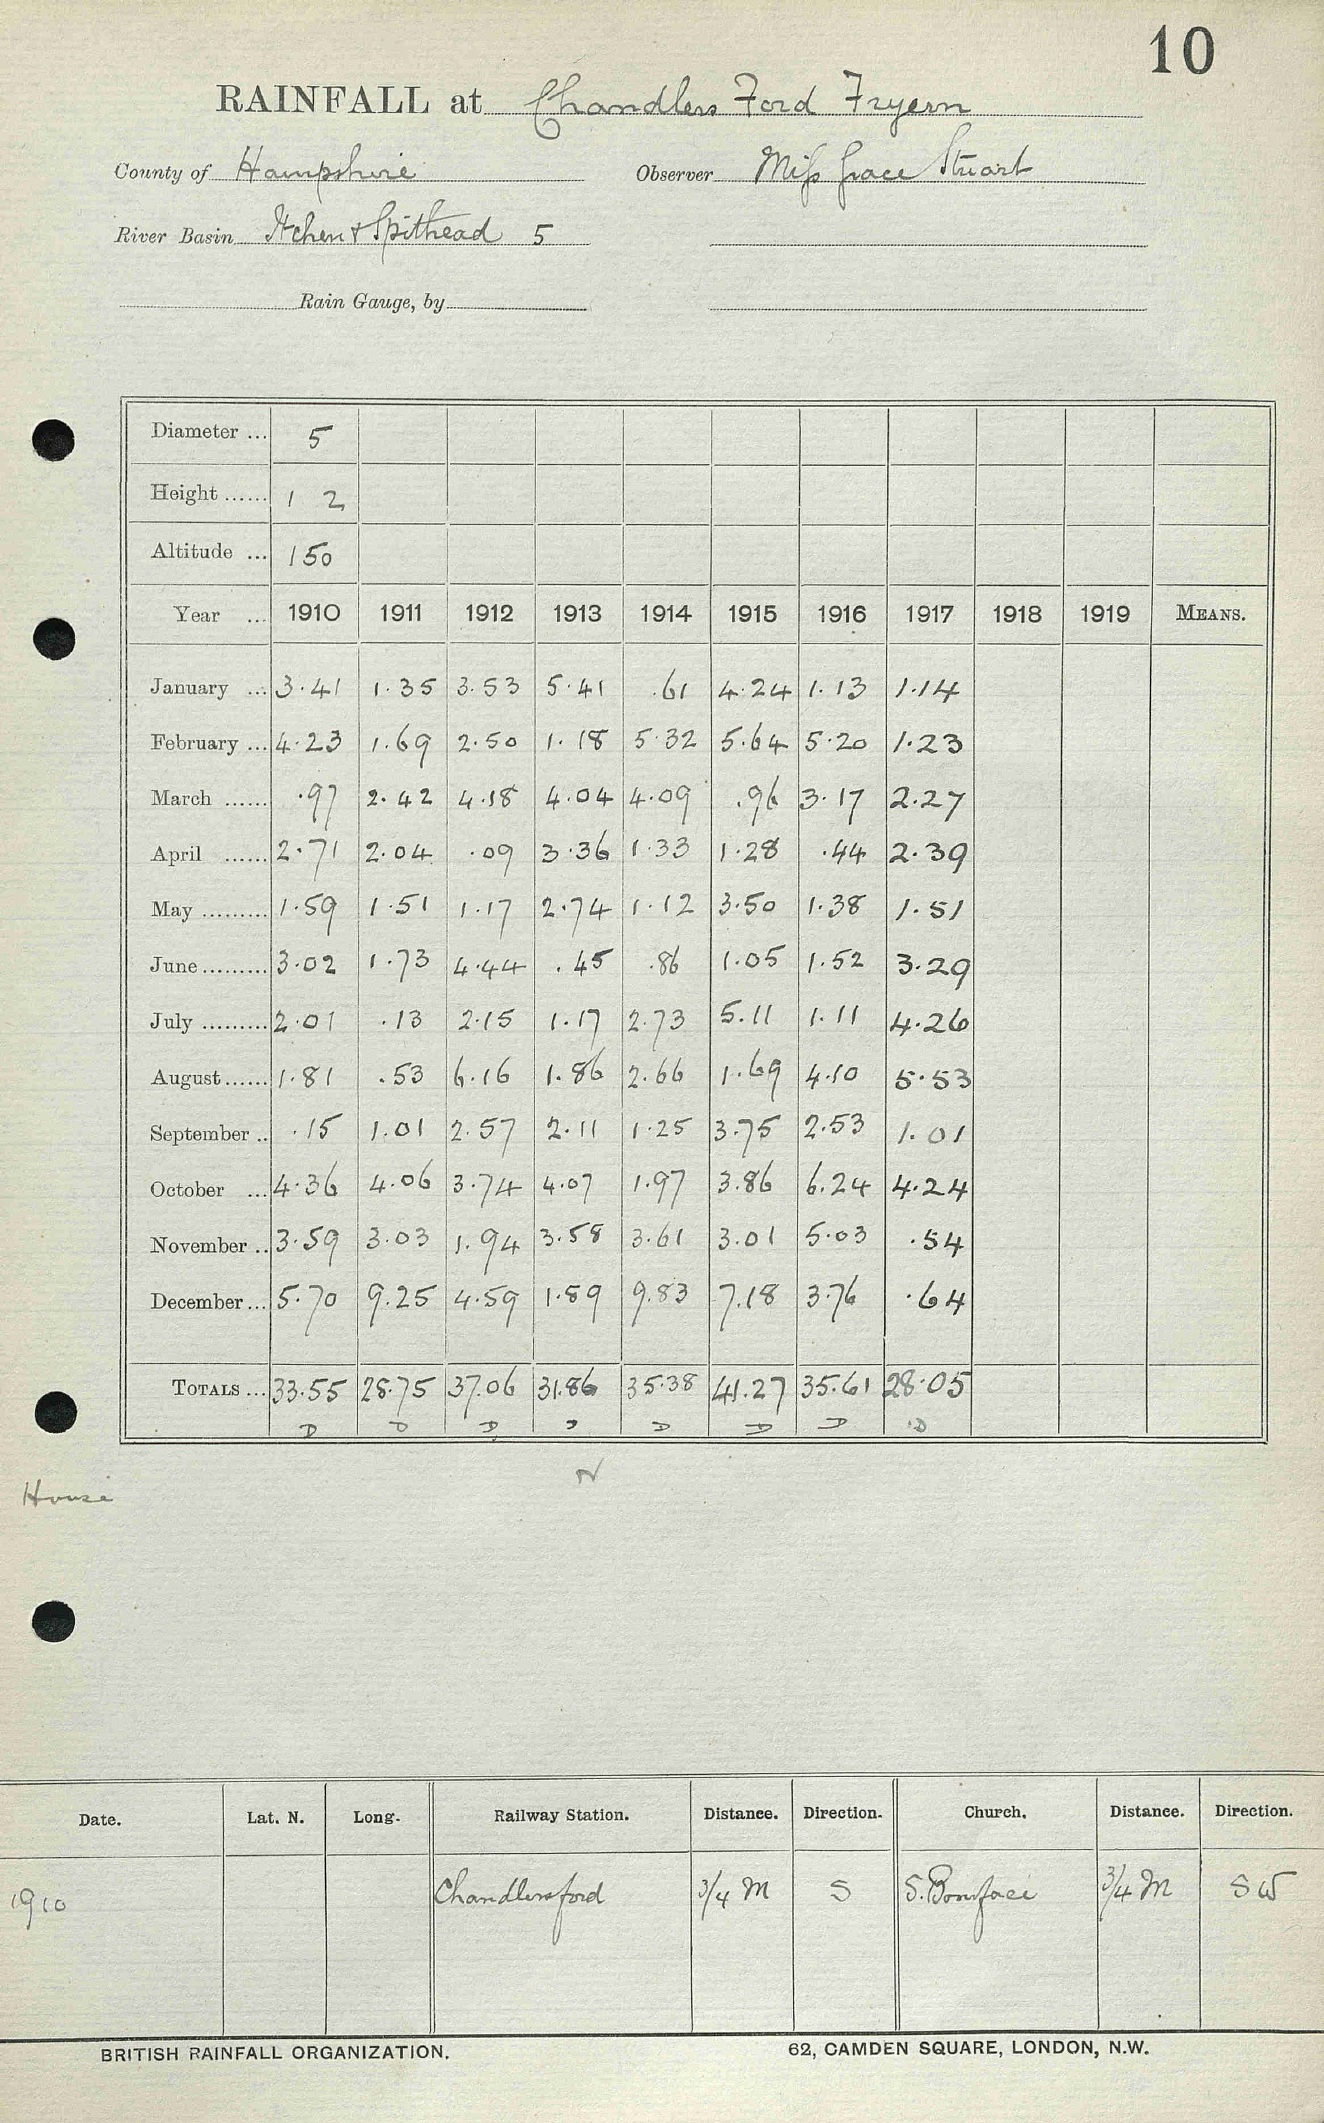 10
RAINFALL at Chandlers Ford Fryern
County of Hampshire Observer Miss Grace Stuart
River Basin Itchen & Spithead 5
Rain Gauge, by
Diameter ... 5
Height ...... 1 2
Altitude ... 150
Year ... 1910 1911 1912 1913 1914 1915 1916 1917 1918 1919 MEANS.
January ... 3.41 1.35 3.53 5.41 .61 4.24 1.13 1.14
February ... 4.23 1.69 2.50 1.18 5.32 5.64 5.20 1.23
March ...... .97 2.42 4.18 4.04 4.09 .96 3.17 2.27
April ...... 2.71 2.04 .09 3.36 1.33 1.28 .44 2.39
May ......... 1.59 1.51 1.17 2.74 1.12 3.50 1.38 1.51
June ......... 3.02 1.73 4.44 .45 .86 1.05 1.52 3.29
July ......... 2.01 .13 2.15 1.17 2.73 5.11 1.11 4.26
August ...... 1.81 .53 6.16 1.86 2.66 1.69 4.10 5.53
September .. .15 1.01 2.57 2.11 1.25 3.75 2.53 1.01
October ... 4.36 4.06 3.74 4.07 1.97 3.86 6.24 4.24
November .. 3.59 3.03 1.94 3.58 3.61 3.01 5.03 .54
December ... 5.70 9.25 4.59 1.89 9.83 7.18 3.76 .64
TOTALS ... 33.55 28.75 37.06 31.86 35.38 41.27 35.61 28.05
D D D D D D D D
House
Date. Lat. N. Long. Railway Station. Distance. Direction. Church. Distance. Direction.
1910 Chandlersford 3/4 M S S. Boniface 3/4 M SW
BRITISH RAINFALL ORGANIZATION. 62, CAMDEN SQUARE, LONDON, N.W.